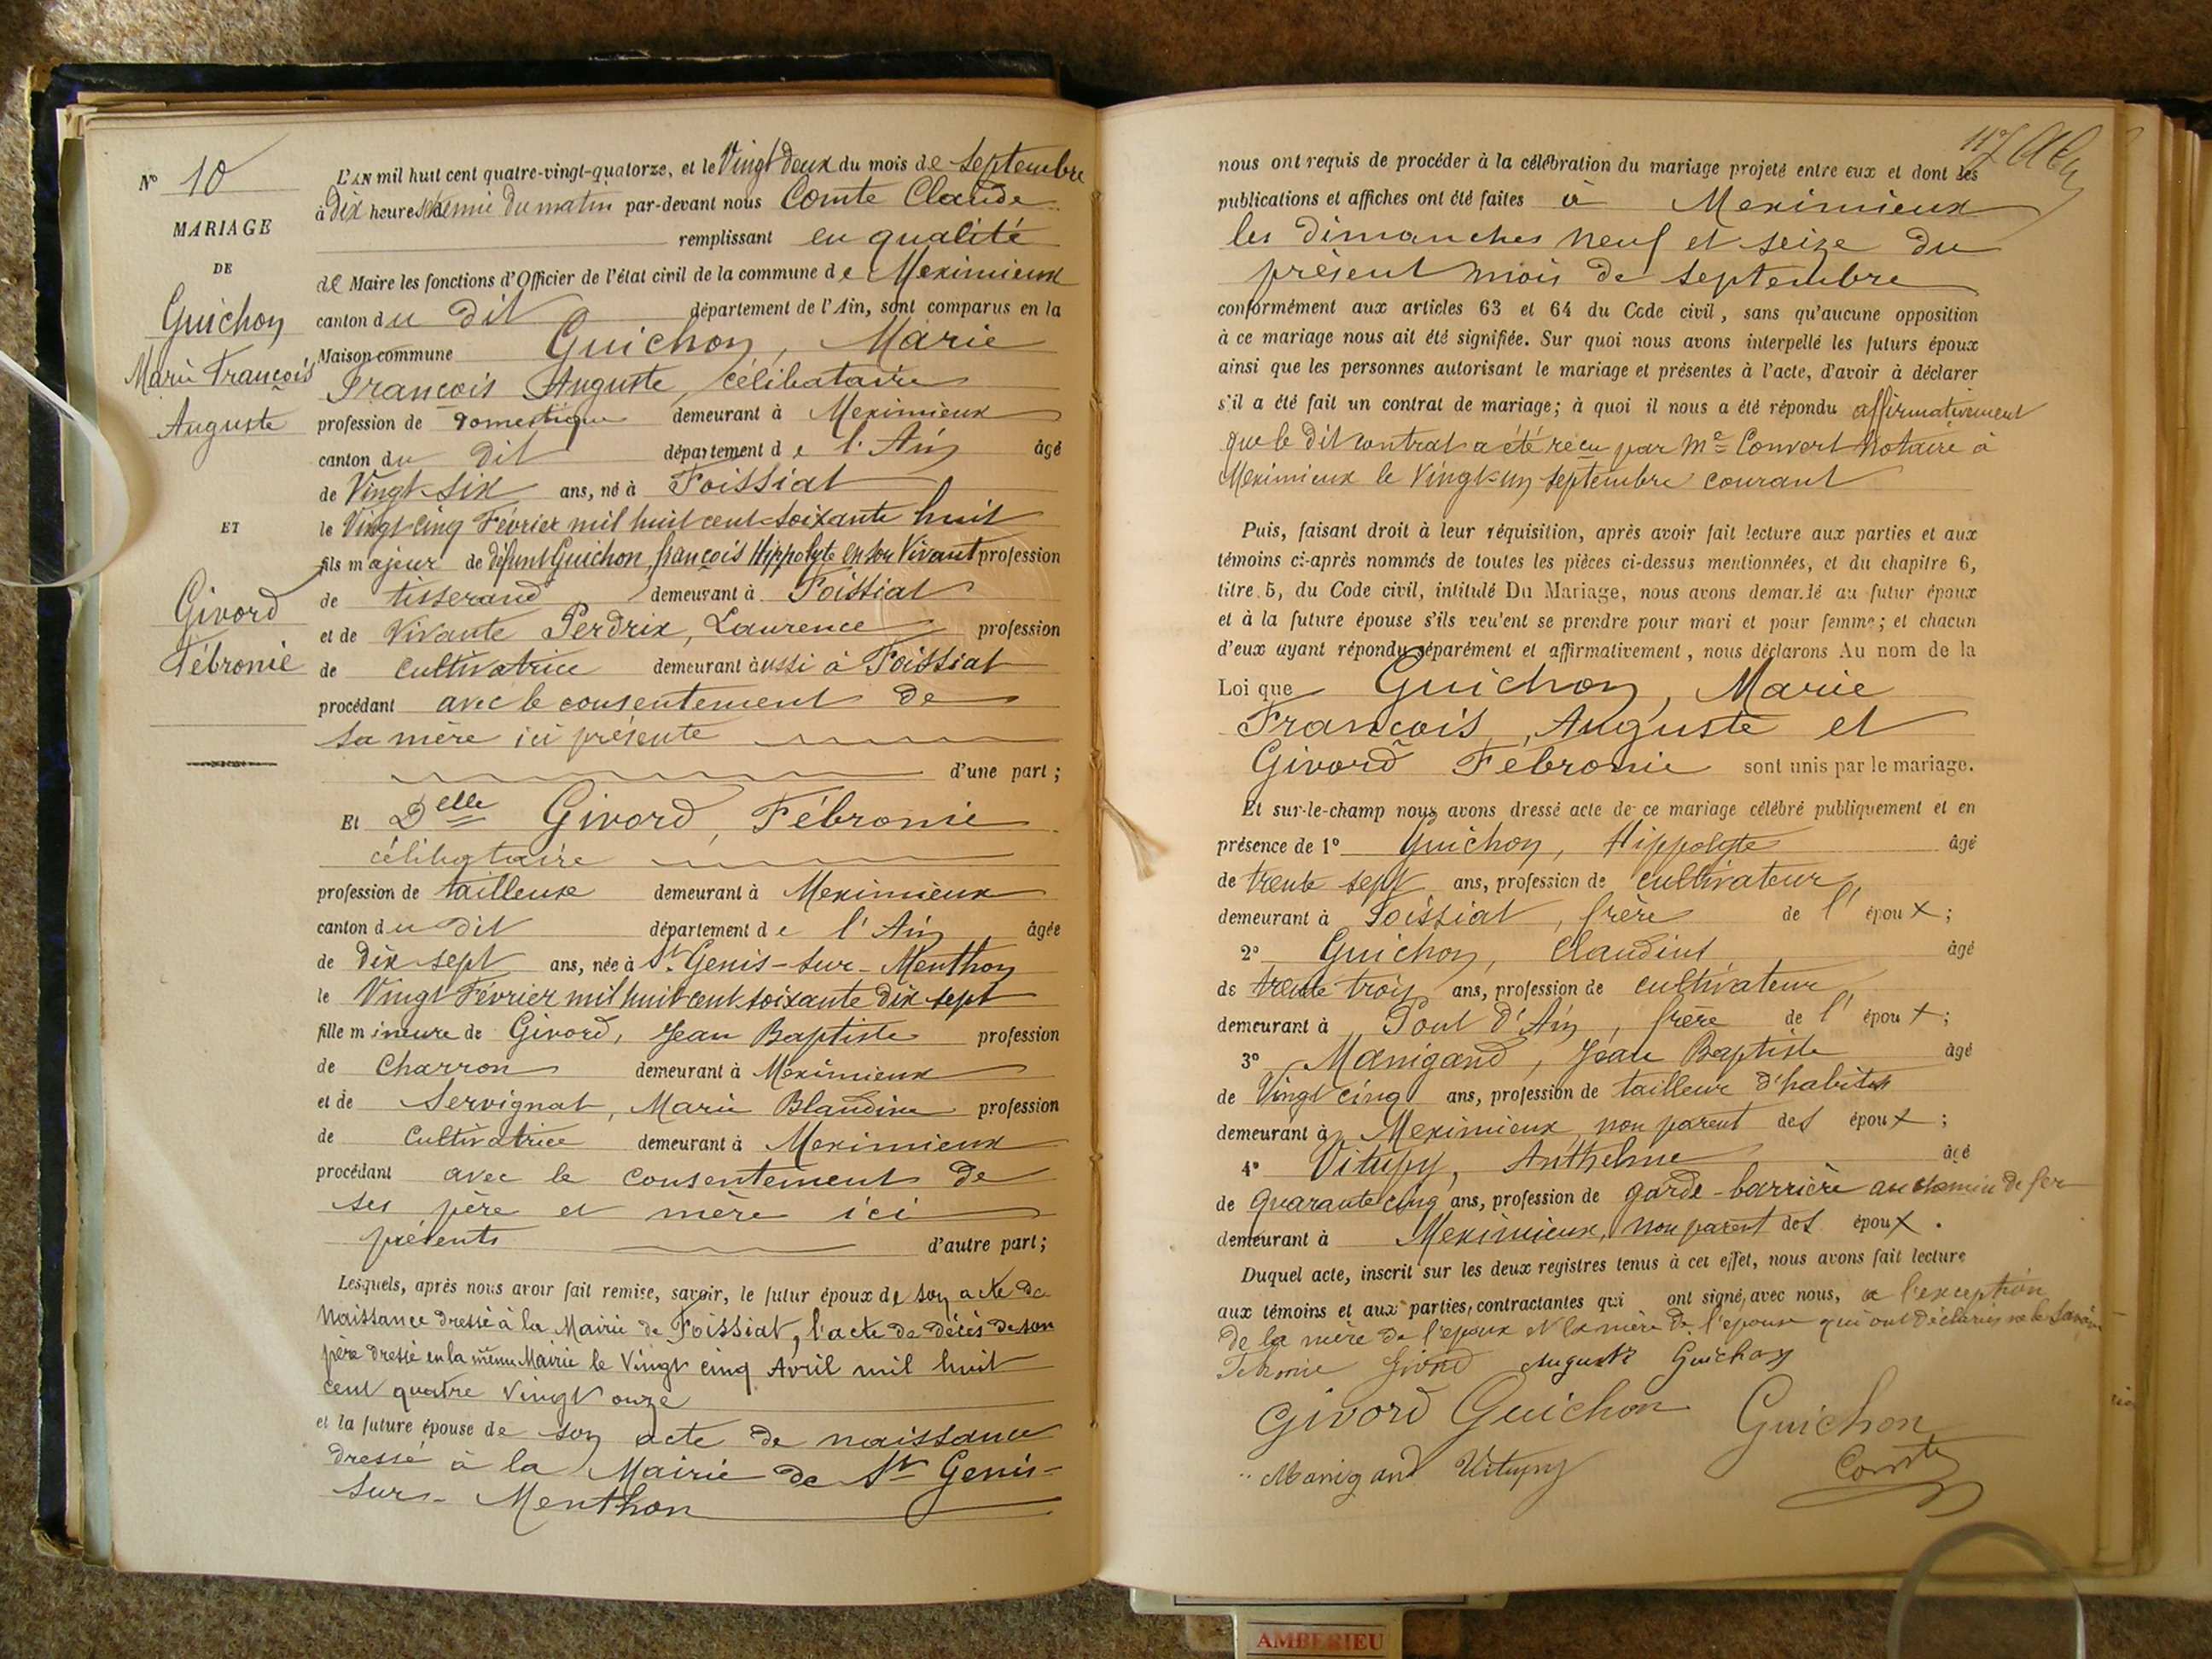 Nº 10
MARIAGE
DE
Guichon
Marie François
Auguste
ET
Givord
Fébronie
L'AN mil huit cent quatre-vingt-quatorze, et le Vingt deux du mois de Septembre
à Dix heures & demie du matin par-devant nous Comte Claude
remplissant en qualité
de Maire les fonctions d'Officier de l'état civil de la commune de Meximieux
canton du dit département de l'Ain, sont comparus en la
Maison commune Guichon, Marie
François Auguste, célibataire
profession de domestique demeurant à Meximieux
canton du dit département de l'Ain âgé
de Vingt-six ans, né à Foissiat
le Vingt cinq Février mil huit cent soixante huit
fils majeur de défunt Guichon françois Hippolyte en son Vivant profession
de tisserand demeurant à Foissiat
et de Vivante Perdrix, Laurence profession
de cultivatrice demeurant aussi à Foissiat
procédant avec le consentement de
sa mère ici présente
d'une part;
Et Delle Givord, Fébronie
célibataire
profession de tailleuse demeurant à Meximieux
canton du dit département de l'Ain âgée
de dix sept ans, née à St. Genis-sur-Menthon
le Vingt Février mil huit cent soixante dix sept
fille mineure de Givord, Jean Baptiste profession
de Charron demeurant à Meximieux
et de Servignat, Marie Blandine profession
de Cultivatrice demeurant à Meximieux
procédant avec le consentement de
ses père et mère ici
présents d'autre part;
Lesquels, après nous avoir fait remise, savoir, le futur époux de son acte de
Naissance dressé à la Mairie de Foissiat, l'acte de décès de son
père dressé en la même Mairie le Vingt cinq Avril mil huit
cent quatre Vingt onze
et la future épouse de son acte de naissance
dressé à la Mairie de St Genis-
sur-Menthon
117
nous ont requis de procéder à la célébration du mariage projeté entre eux et dont les
publications et affiches ont été faites à Meximieux
les dimanches neuf et seize du
présent mois de septembre
conformément aux articles 63 et 64 du Code civil, sans qu'aucune opposition
à ce mariage nous ait été signifiée. Sur quoi nous avons interpellé les futurs époux
ainsi que les personnes autorisant le mariage et présentes à l'acte, d'avoir à déclarer
s'il a été fait un contrat de mariage; à quoi il nous a été répondu affirmativement
que le dit contrat a été reçu par Me Convert Notaire à
Meximieux le Vingt-un septembre courant
Puis, faisant droit à leur réquisition, après avoir fait lecture aux parties et aux
témoins ci-après nommés de toutes les pièces ci-dessus mentionnées, et du chapitre 6,
titre 5, du Code civil, intitulé Du Mariage, nous avons demandé au futur époux
et à la future épouse s'ils veulent se prendre pour mari et pour femme; et chacun
d'eux ayant répondu séparément et affirmativement, nous déclarons Au nom de la
Loi que Guichon, Marie
François, Auguste et
Givord Fébronie sont unis par le mariage.
Et sur-le-champ nous avons dressé acte de ce mariage célébré publiquement et en
présence de 1º Guichon, Hippolyte âgé
de trente sept ans, profession de cultivateur
demeurant à Foissiat, frère de l'époux;
2º Guichon, Claudius âgé
de trente trois ans, profession de cultivateur
demeurant à Pont d'Ain, frère de l'époux;
3º Manigand, Jean Baptiste âgé
de Vingt cinq ans, profession de tailleur d'habits
demeurant à Meximieux non parent des époux;
4º Vitupy, Anthelme âgé
de quarante cinq ans, profession de garde-barrière au chemin de fer
demeurant à Meximieux, non parent des époux.
Duquel acte, inscrit sur les deux registres tenus à cet effet, nous avons fait lecture
aux témoins et aux parties contractantes qui ont signé, avec nous, à l'exception
de la mère de l'époux et la mère de l'épouse qui ont déclarés ne le savoir
Givord Auguste Guichon
Givord Guichon Guichon
Manigand Vitupy Comte
AMBERIEU